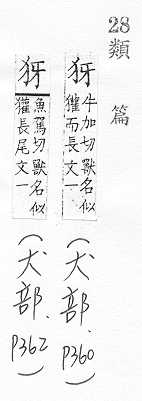 28類篇
犽牛加切獸名似
獾而長文一
(犬部、P360)
犽魚駕切獸名似
獾長尾文一
(犬部、P362)